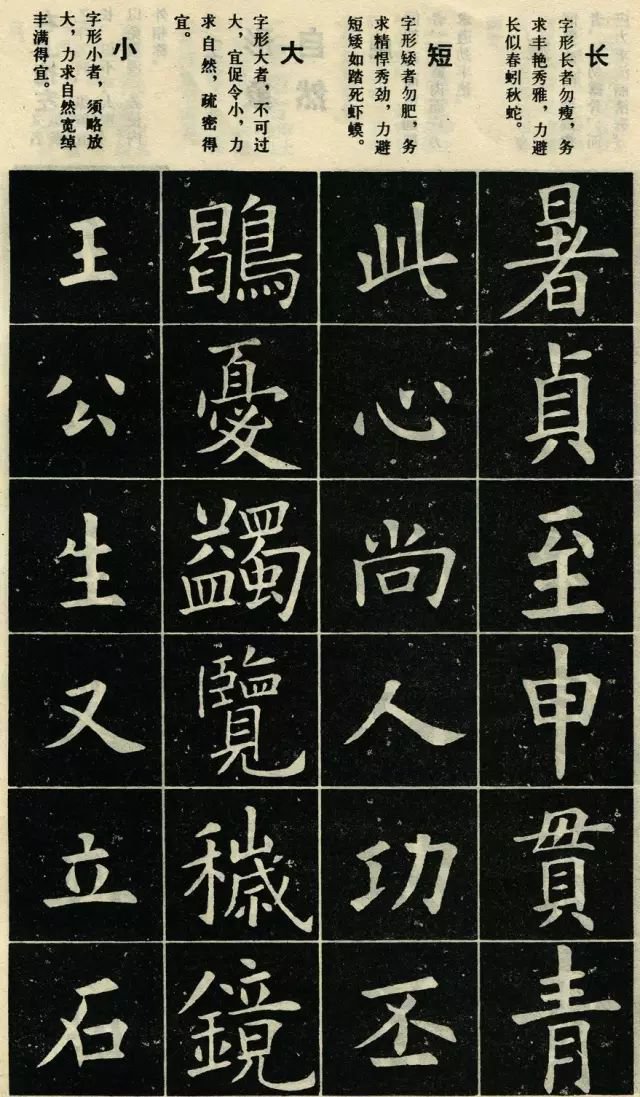 长
字形长者勿瘦，务
求丰艳秀雅，力避
长似春蚓秋蛇。
短
字形矮者勿肥，务
求精悍秀劲，力避
短矮如踏死虾蟆。
大
字形大者，不可过
大，宜促令小，力
求自然，疏密得
宜。
小
字形小者，须略放
大，力求自然宽绰
丰满得宜。
暑貞至申貫青
此心尚人功丕
鶡憂蠲覽穢鏡
王公生又立石